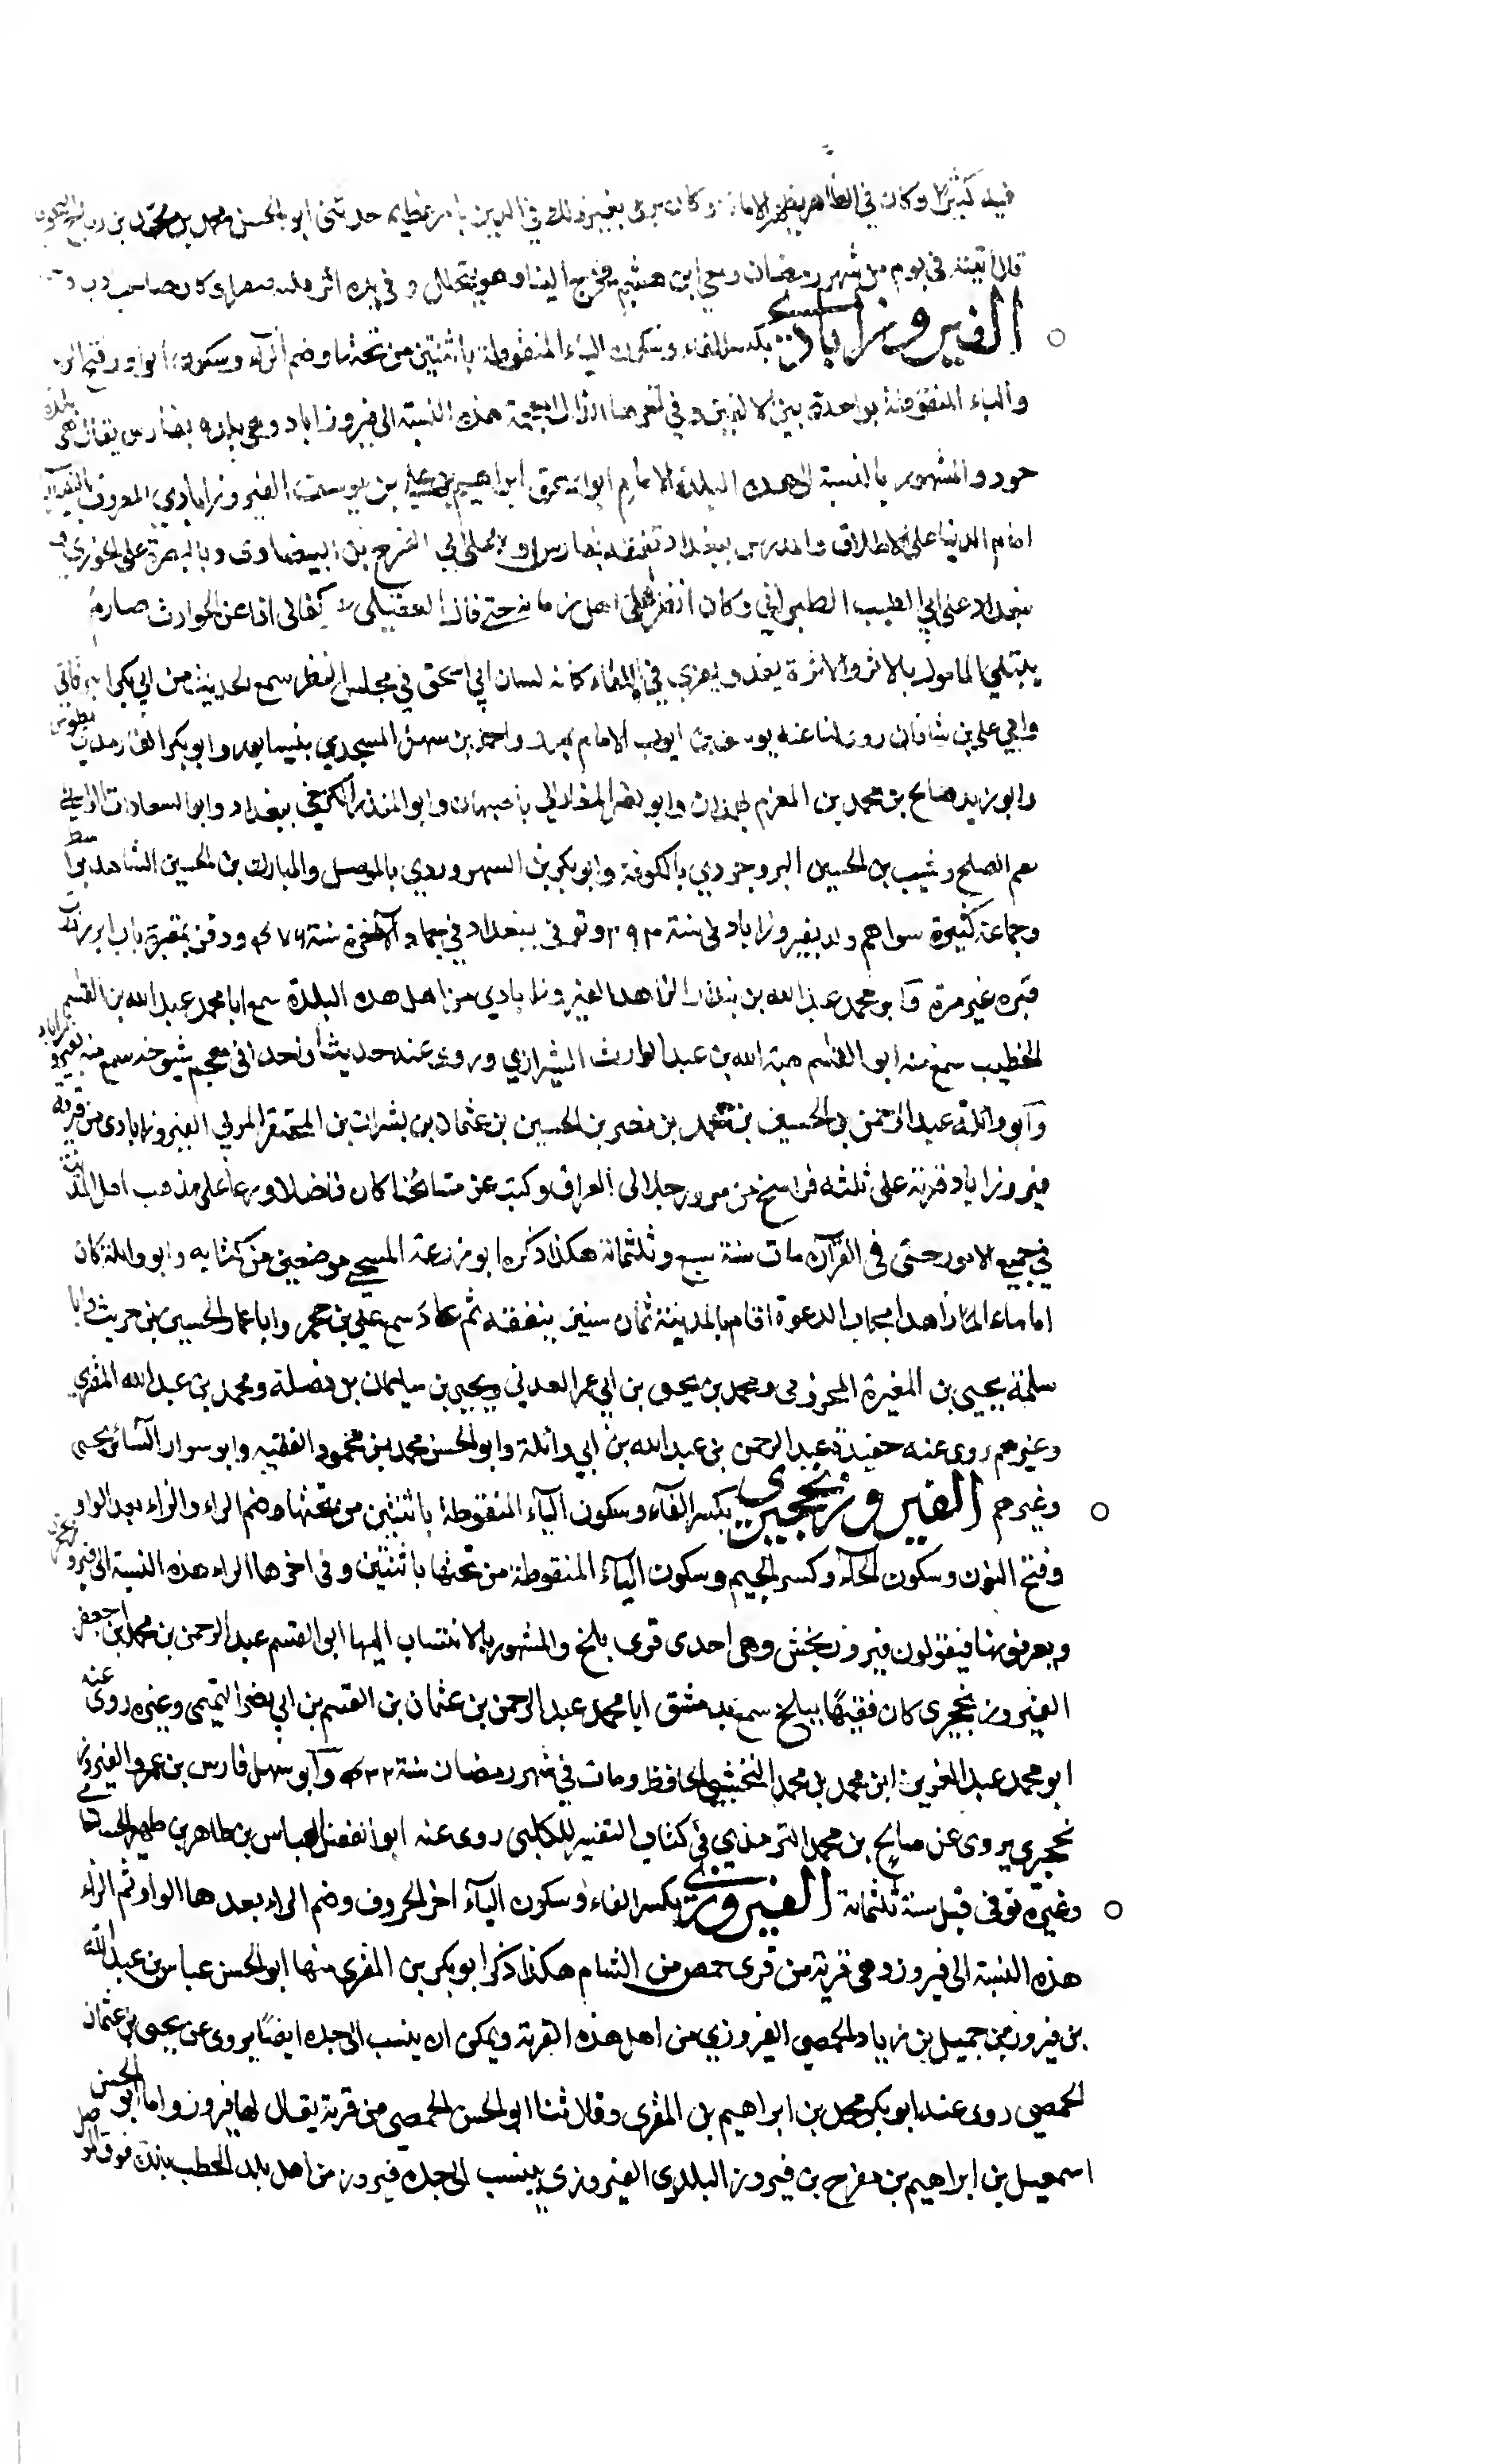 فيه كثيرا وكان في الظاهر يظهر الامانة وكان يرمى بغير ذلك في الدين بامر عظيم حدثني ابو الحسن محمد بن محمد بن
قال اتيته في يوم من شهر رمضان ومعي ابن هشيم فخرج الينا وهو يتخلل وفي يده اثر وكان صاحب ادب
الفيروزابادي بكسر الفاء وسكون الياء المنقوطة باثنتين من تحتها وضم الراء وسكون الواو وفتح الزاي
والباء المنقوطة بواحدة بين الالفين وفي اخرها الذال المعجمة هذه النسبة الى فيروزاباد وهي بلدة بفارس يقال هي
جور والمشهور بالنسبة الى هذه البلدة الامام ابو اسحق ابراهيم بن علي بن يوسف الفيروزابادي المعروف
امام الدنيا على الاطلاق والمدرس ببغداد تفقه بفارس على ابي الفرج بن البيضاوى وبالبصرة على الخوزي
ببغداد على ابي الطيب الطبري وكان انظر اهل زمانه حتى قال العقيلي كفاني اذا عن الحوادث صارم
ينيلني المامول بالاثر والاثرة يقد ويفري في اللقاء كانه لسان ابي اسحق في مجلس النظر سمع الحديث من ابي بكر البرقاني
وابي علي بن شاذان روى لنا عنه يوسف بن ايوب الامام بمرو واحمد بن سهل المسجدي بنيسابور وابو بكر الفارمذي بطوس
وابو زيد صالح بن محمد بن المعزم بهمذان وابو نصر المغازلي باصبهان وابو المنذر الكرخي ببغداد وابو السعادات
بفم الصلح وشبيب بن الحسين البروجردي بالكوفة وابو بكر بن السهروردي بالموصل والمبارك بن الحسين الشاهد بواسط
وجماعة كثيرة سواهم ولد بفيروزاباد في سنة ٣٩٣ وتوفى ببغداد في جماد الاخرة سنة ٤٧٦ ودفن بمقبرة باب ابرز زرت
قبره غير مرة وابو محمد عبد الله بن الزاهد الفيروزابادي من اهل هذه البلدة سمع ابا محمد عبد الله بن القسم
الخطيب سمع منه ابو القسم هبة الله بن عبد الوارث الشيرازي وروى عنه حديثا واحدا في معجم شيوخه سمع منه بفيروزاباد
وابو وائلة عبد الرحمن بن الحسين بن محمد بن نصر بن الحسين بن عثمان بن بشران بن المحتفر المزني الفيروزابادى من قرية
فيروزاباد قرية على ثلثه فراسخ من مرو رحل الى العراق وكتب عن مشائخنا كان فاضلا ورعا على مذهب اهل المدينة
في جميع الامور حتى في القرآن مات سنة سبع وثلثمائة هكذا ذكره ابو زرعة المسيحي موضعين من كتابه وابو وائلة كان
اماما عالما زاهدا مجاب الدعوة اقام بالمدينة ثمان سنين يتفقه ثم عاد سمع علي بن حجر وابا عمار الحسين بن حريث وابا
سلمة يحيى بن المغيرة المخزومى ومحمد بن يحيى بن ابي عمر العدني ويحيى بن سليمان بن نضلة ومحمد بن عبد الله المقري
وغيرهم روى عنه حفيده عبد الرحمن بن عبد الله بن ابي وائلة وابو الحسن محمد بن محمود الفقيه وابو سوار
وغيرهم الفيروزنخجيرى بكسر الفاء وسكون الياء المنقوطة باثنتين من تحتها وضم الراء والزاء بعد الواو
وفتح النون وسكون الخاء وكسر الجيم وسكون الياء المنقوطة من تحتها باثنتين وفى اخرها الراء هذه النسبة الى فيروزنخجير
ويعربونها فيقولون فيروزنخش وهى احدى قرى بلخ والمشهور بالانتساب اليها ابو القسم عبد الرحمن بن محمد بن جعفر
الفيروزنخجيرى كان فقيها ببلخ سمع بدمشق ابا محمد عبد الرحمن بن عثمان بن القسم بن ابي نصر التميمى وغيره روى عنه
ابو محمد عبد العزيز ابن محمد بن محمد النخشبي الحافظ ومات في شهر رمضان سنة ٤٣٢ وابو سهل فارس بن عمرو الفيروز
نخجيري يروى عن صالح بن محمد الترمذي في كتاب التفسير للكلبي روى عنه ابو الفضل العباس بن طاهر بن ظهير
وغيره توفى قبل سنة ثلثمائة الفيروزي بكسر الفاء وسكون الياء اخر الحروف وضم الراء بعدها الواو ثم الزاء
هذه النسبة الى فيروز وهي قرية من قرى حمص من الشام هكذا ذكر ابو بكر بن المقري منها ابو الحسن عباس بن عبد الله
بن فيروز من جميل بن زياد الحمصي الفيروزي من اهل هذه القرية ويمكن ان ينسب الى جده ايضا يروى عن يحيى بن عثمان
الحمصي روى عنه ابو بكر محمد بن ابراهيم بن المقرى وقال ثنا ابو الحسن الحمصي من قرية يقال لها فيروز واما ابو الحسن
اسمعيل بن ابراهيم بن مفرح بن فيروز البلدي الفيروزي ينسب الى جده فيروز من اهل بلد الحطب بلدة فوق الموصل